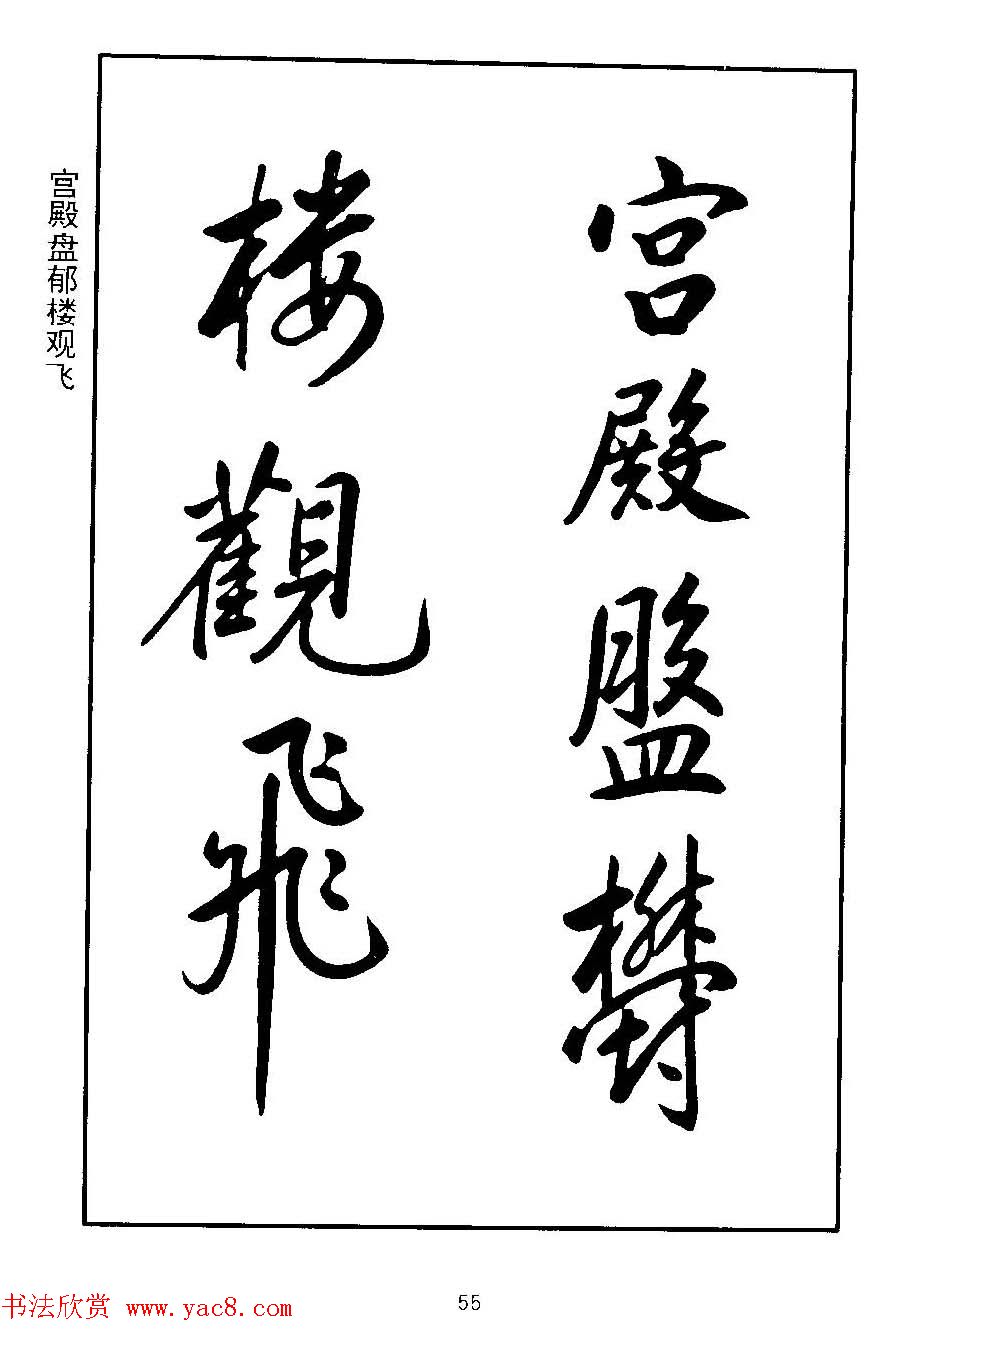 宫殿盤欝
楼觀飛
宫殿盘郁楼观飞
55
书法欣赏 www.yac8.com